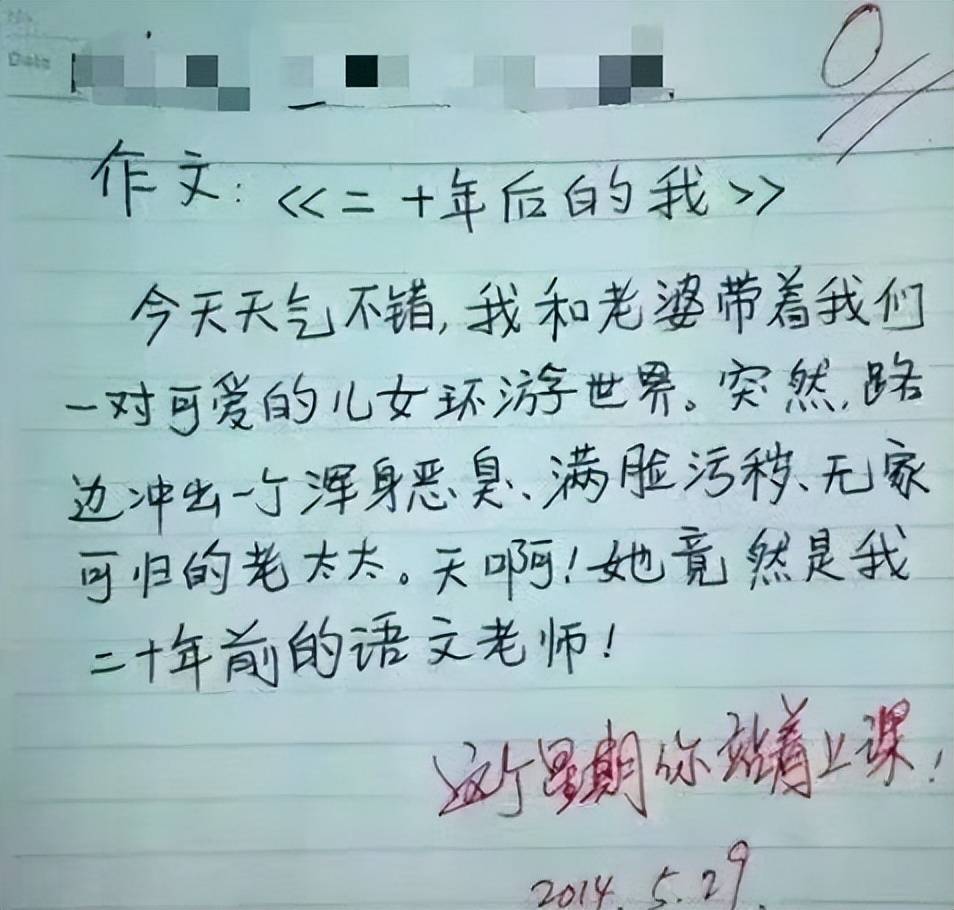 Date
0
作文:<<二十年后的我>>
今天天气不错,我和老婆带着我们
一对可爱的儿女环游世界。突然,路
边冲出一个浑身恶臭、满脸污秽、无家
可归的老太太。天啊!她竟然是我
二十年前的语文老师!
这个星期你站着上课!
2014.5.29.